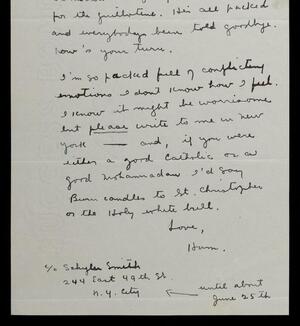 for the guillotine. He's all packed
and everybodys been told goodbye.
Now's your turn.
I'm so packed full of conflicting
emotions I dont know how I feel.
I know it might be worrisome
but please write to me in new
york — and, if you were
either a good Catholic or a
good Mohammadan I'd say
Burn candles to St. Christopher
or the Holy white bull.
Love,
Hum.
c/o Schyler Smith
244 East 49th St.
N.Y. City
← until about
June 25th